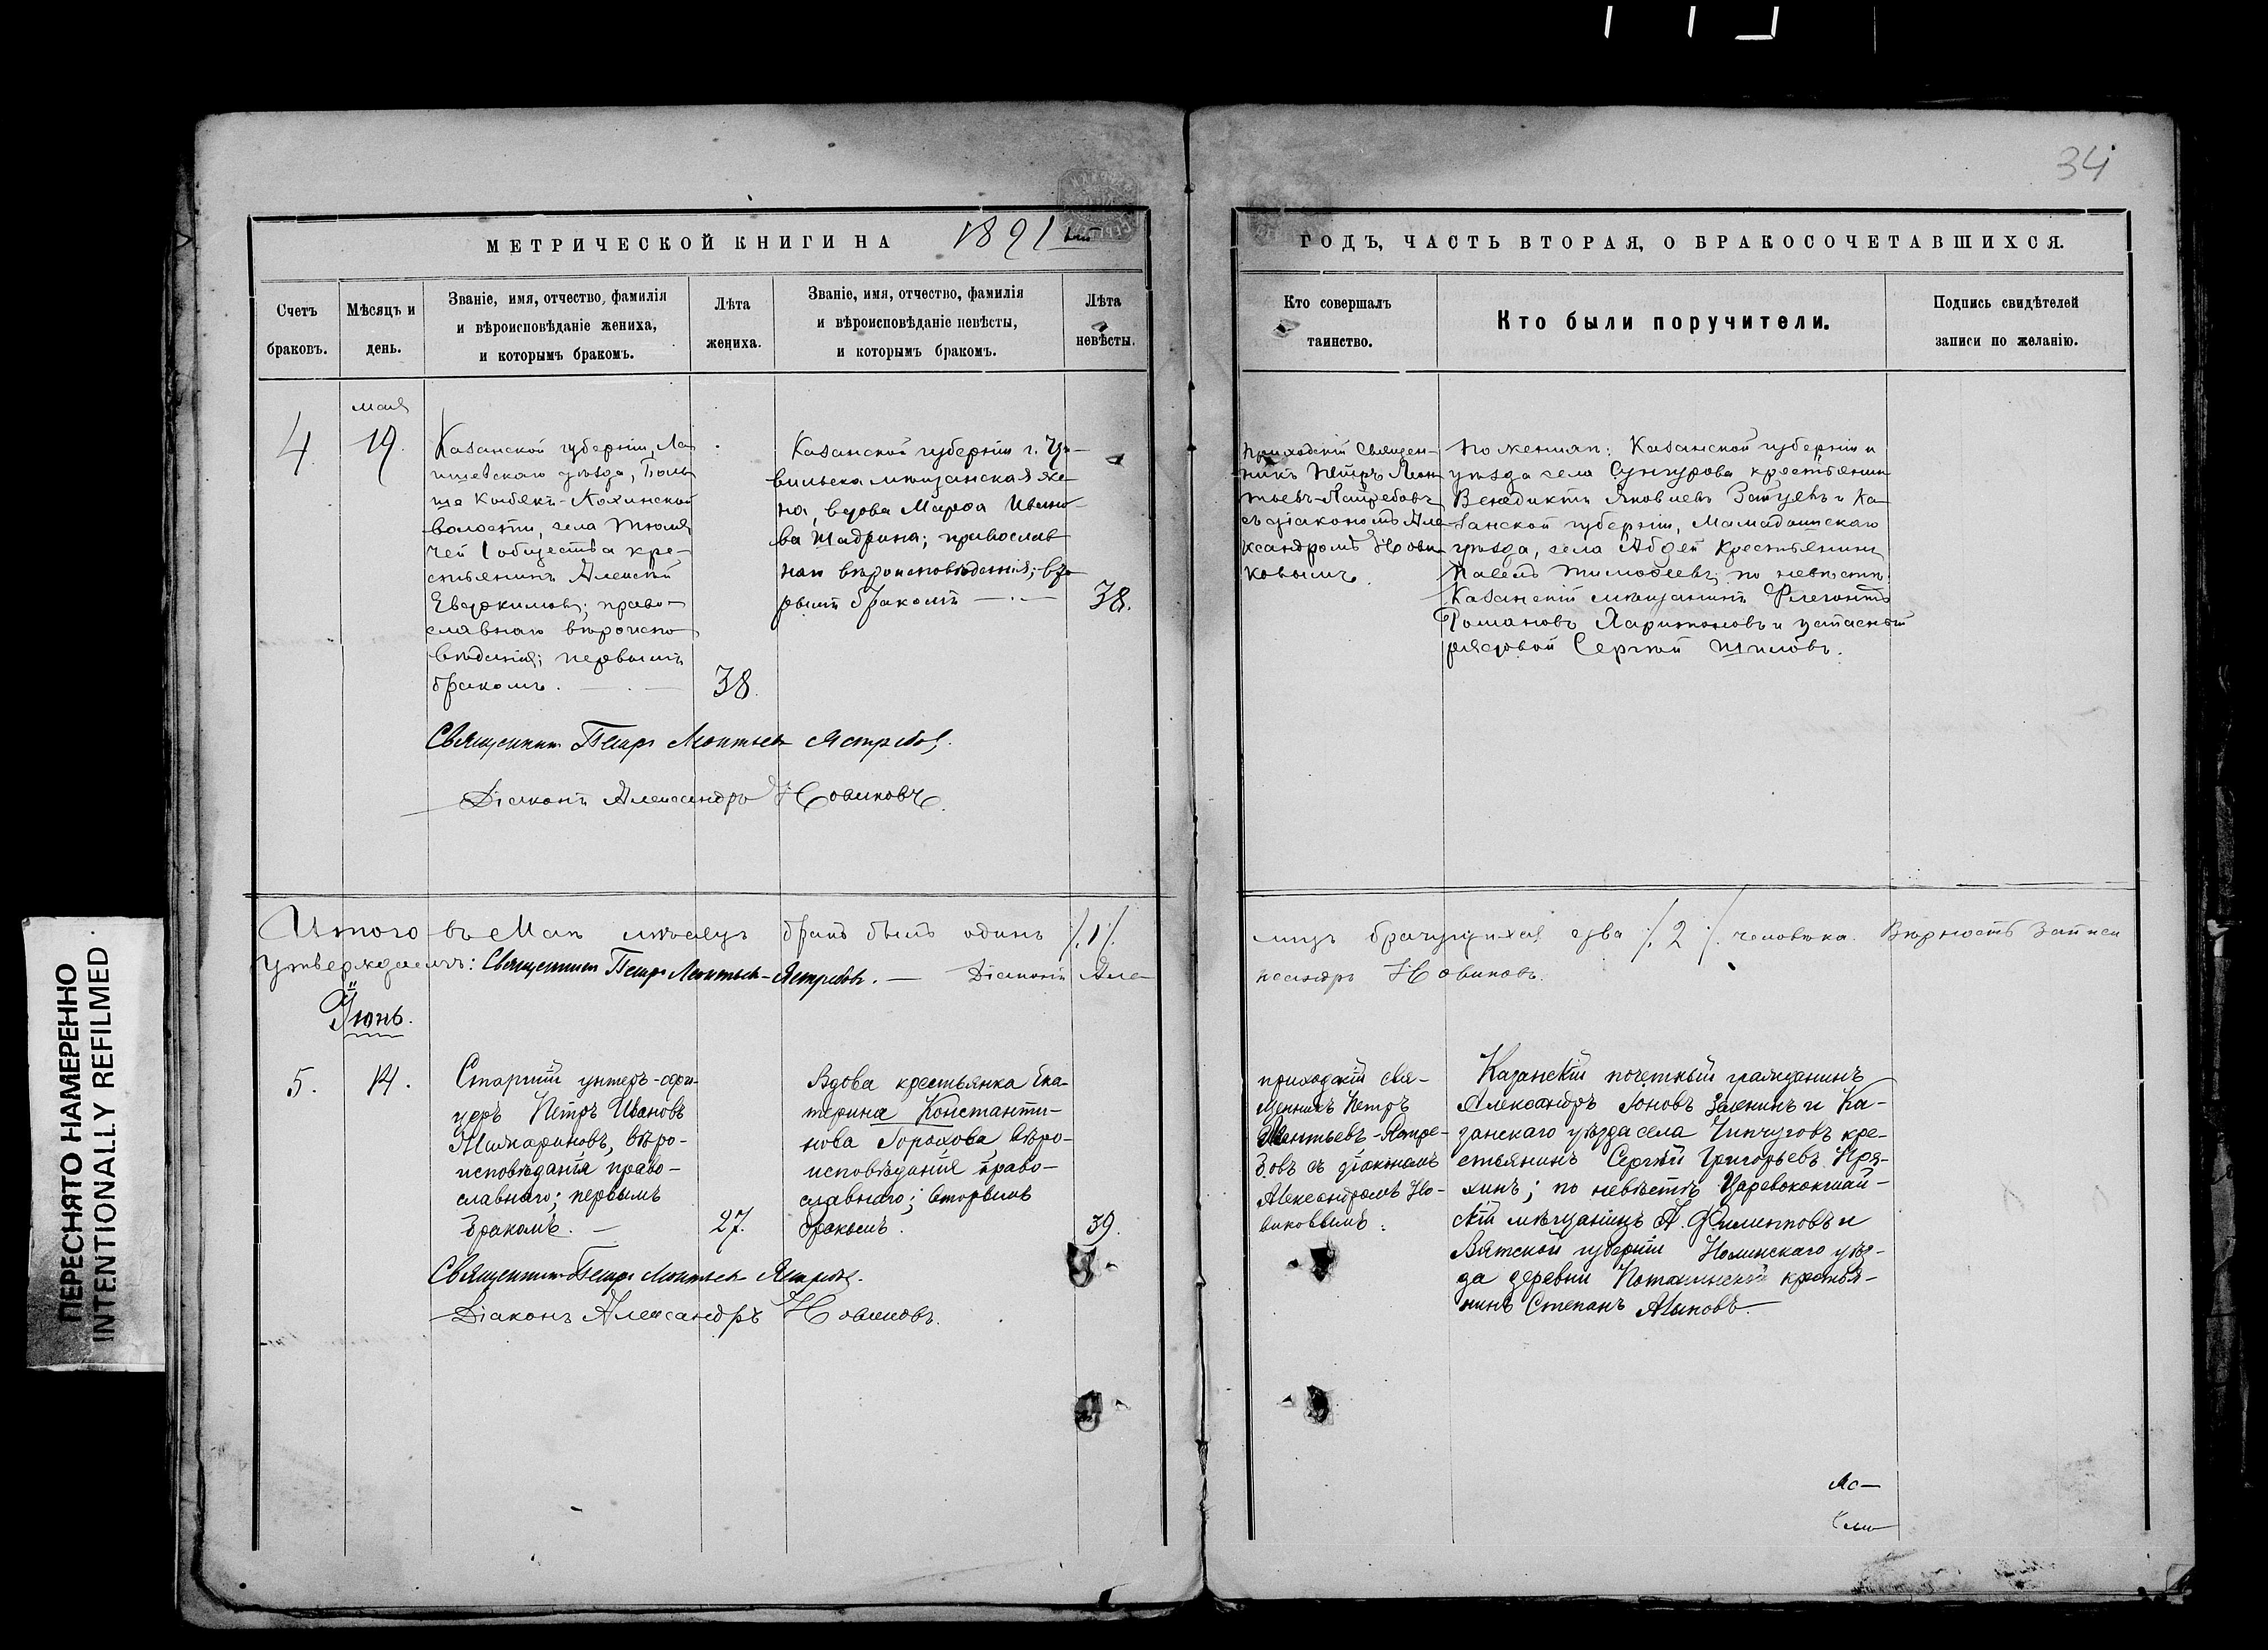 34
МЕТРИЧЕСКОЙ КНИГИ НА 1891 ГОДЪ, ЧАСТЬ ВТОРАЯ, О БРАКОСОЧЕТАВШИХСЯ.
Счетъ
браковъ.
Мѣсяцъ и
день.
Званіе, имя, отчество, фамилія
и вѣроисповѣданіе жениха,
и которымъ бракомъ.
Лѣта
жениха.
Званіе, имя, отчество, фамилія
и вѣроисповѣданіе невѣсты,
и которымъ бракомъ.
Лѣта
невѣсты.
Кто совершалъ
таинство.
Кто были поручители.
Подпись свидѣтелей
записи по желанію.
4.
мая
19.
Казанской губерніи, Ла-
ишевскаго уѣзда, Боль
ше Кибякъ-Кохинской
волости, села Тюля
чей 1 общества кре-
стьянинъ Алексѣй
Евдокимовъ; право-
славнаго вѣроиспо
вѣданія; первымъ
бракомъ.
38.
Казанской губерніи г. Ци-
вильска мѣщанская же-
на, вдова Марѳа Ивано-
ва Шадрина; православ
наго вѣроисповѣданія; вто
рымъ бракомъ
38.
Приходскій Священ-
никъ Петръ Леон
тьевъ-Ястребовъ
съ діакономъ Але
ксандромъ Нови
ковымъ.
По женихѣ: Казанской губерніи и
уѣзда села Сунгурова крестьянинъ
Венедиктъ Яковлевъ Зайцевъ и Ка-
занской губерніи, Мамадышскаго
уѣзда, села Абдей крестьянинъ
Павелъ Тимоѳеевъ; по невѣстѣ:
Казанскій мѣщанинъ Флегонтъ
Романовъ Ларионовъ и запасный
рядовой Сергѣй Шиловъ.
Священникъ Петръ Леонтьевъ Ястребовъ.
Діаконъ Александръ Новиковъ.
Итого въ Маѣ мѣсяцѣ бракъ былъ одинъ /.1/. лицъ брачущихся два /.2/. человѣка. Вѣрность записи
утверждаемъ: Священникъ Петръ Леонтьевъ-Ястребовъ. — Діаконъ Але
ксандръ Новиковъ.
Іюнь.
5.
14.
Старшій унтеръ-офи-
церъ Петръ Ивановъ
вѣро-
исповѣданія право-
славнаго; первымъ
бракомъ. —
27.
Вдова крестьянка Ека-
терина Константи-
нова Горохова, вѣро-
исповѣданія право-
славнаго; вторымъ
бракомъ.
39.
приходскій свя-
щенникъ Петръ
Леонтьевъ-Ястре-
бовъ съ діакономъ
Александромъ Но-
виковымъ.
Казанскій почетный гражданинъ
Александръ Іоновъ и Ка-
занскаго уѣзда села Чипчуговъ кре-
стьянинъ Сергѣй Григорьевъ Пря-
хинъ; по невѣстѣ Царевококшай-
скій мѣщанинъ А. Филиповъ и
Вятской губерніи Нолинскаго уѣз-
да деревни крестья-
нинъ Степанъ
Священникъ Петръ Леонтьевъ Ястребовъ.
Діаконъ Александръ Новиковъ.
ПЕРЕСНЯТО НАМЕРЕННО
INTENTIONALLY REFILMED